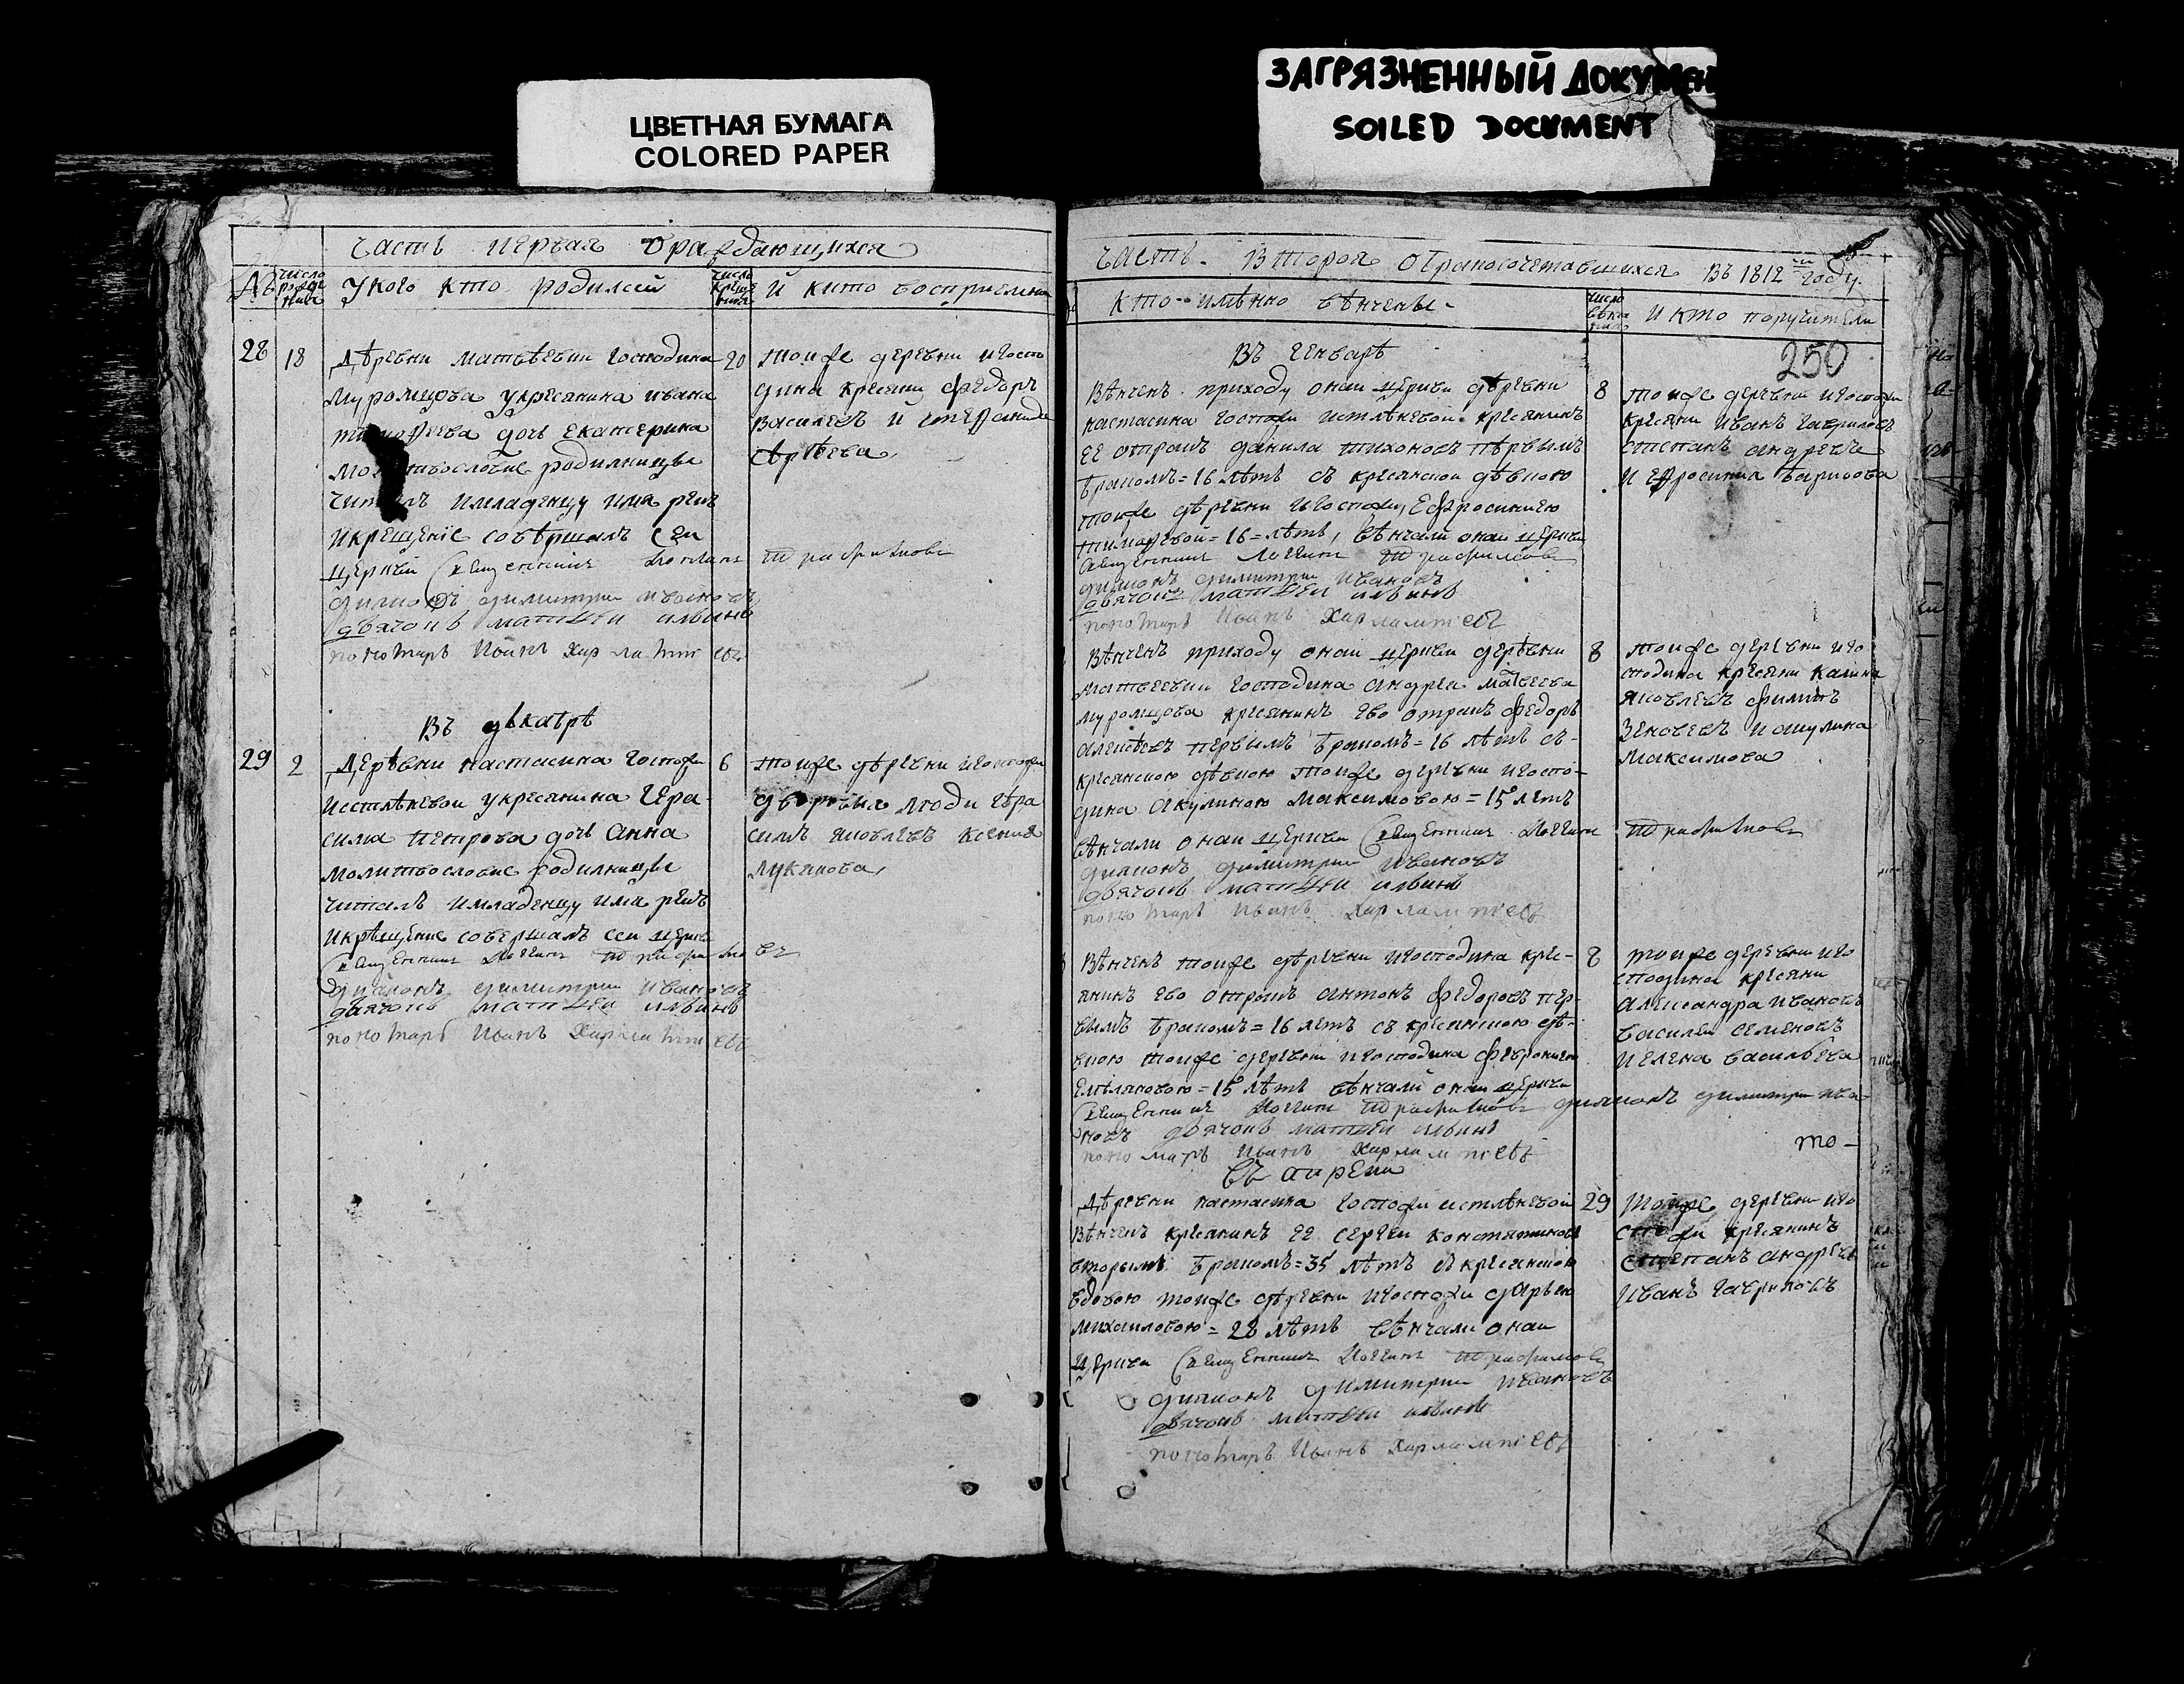 ЦВЕТНАЯ БУМАГА
COLORED PAPER
ЗАГРЯЗНЕННЫЙ ДОКУМЕН
SOILED DOCUMENT
часть первая ораждающихся
№
число рожде ния
У кого кто родился
число креще ния
и кито восприемник
28
18
деревни матвѣевки господина
муромцова укресянина ивана
дочь екатерина
молитвословие родилницы
читалъ имладенцу имя рекъ
икрещение совѣршалъ сеи
церкви священникъ Логгинъ трафимовъ
диаконъ димитрии ивановъ
дьячокъ матвеи ильинъ
пономарь Иванъ Харлампиевъ
20
тоиже деревни игоспо
дина кресяни федоръ
василевъ и степанида
въ декабрѣ
29
2
Деревни настасина госпожи
истлѣневои укресянина гера
сима петрова дочь анна
молитвословие родилницы
читалъ имладенцу имя рекъ
икрѣщение совершалъ сеи церкви
священникъ Логгинъ трафимовъ
диаконъ димитрии ивановъ
дьячокъ матвеи ильинъ
пономарь Иванъ Харлампиевъ
6
тоиже деревни игоспожи
дворовыя люди гера
симъ яковлевъ ксения
лукянова
часть вторая обракосочетавшихся въ 1812 м году
кто имѣнно вѣнчены
и кто поручители
250
въ генварѣ
Вѣнченъ приходу онаи церкви деревни
настасина госпожи истлѣневои кресянинъ
ее отрокъ данила тихоновъ пѣрвымъ
бракомъ = 16 лѣтъ съ кресянскои дѣвкою
тоиже дѣревни игоспожи Ефросиниею
тимофевои = 16 = лѣтъ, вѣнчали онаи церкви
священникъ Логгинъ трафимовъ
диаконъ димитрии ивановъ
дьячокъ матвеи ильинъ
пономарь Иванъ Харлампиевъ
8
тоиже деревни игоспожи
кресяни иванъ гавриловъ
степанъ андреевъ
и ефросиния
Вѣнченъ приходу онаи церкви деревни
матвеевки господина андрея матвеева
муромцова кресянинъ ево отрокъ федоръ
алексѣевъ первымъ бракомъ = 16 лѣтъ съ
кресянскою дѣвкою тоиже деревни игоспо-
дина акулиною максимовою = 15 летъ
вѣнчали онаи церкви священникъ Логгинъ трафимовъ
диаконъ димитрии ивановъ
дьячокъ матвеи ильинъ
пономарь Иванъ Харлампиевъ
8
тоиже деревни иго
сподина кресяни калина
яковлевъ филипъ
зеновевъ иакулина
максимова
Вѣнченъ тоиже деревни игосподина крес-
янинъ ево отрокъ антонъ федоровъ пер-
вымъ бракомъ = 16 летъ съ кресянскою дѣ-
вкою тоиже деревни игосподина февронию
Емеляновою = 15 лѣтъ вѣнчали онаи церкви
священникъ Логгинъ трафимовъ диаконъ димитрии ива
новъ дьячокъ матвеи ильинъ
пономарь Иванъ Харлампиевъ
8
тоиже деревни иго
сподина кресяни
александра ивановъ
василеи семеновъ
иелена василева
то-
въ апрели
Деревни настасина госпожи истлѣневои
Вѣнченъ кресянинъ ее сергеи константиновъ
вторымъ бракомъ = 35 лѣтъ съ кресянскою
вдовою тоиже деревни игоспожи дарьею
михаиловою = 28 лѣтъ вѣнчали онаи
церкви священникъ Логгинъ трафимовъ
диаконъ димитрии ивановъ
дьячокъ матвеи ильинъ
пономарь Иванъ Харлампиевъ
29
тоиже деревни иго
спожи кресянинъ
степанъ андреевъ
иванъ гавриловъ